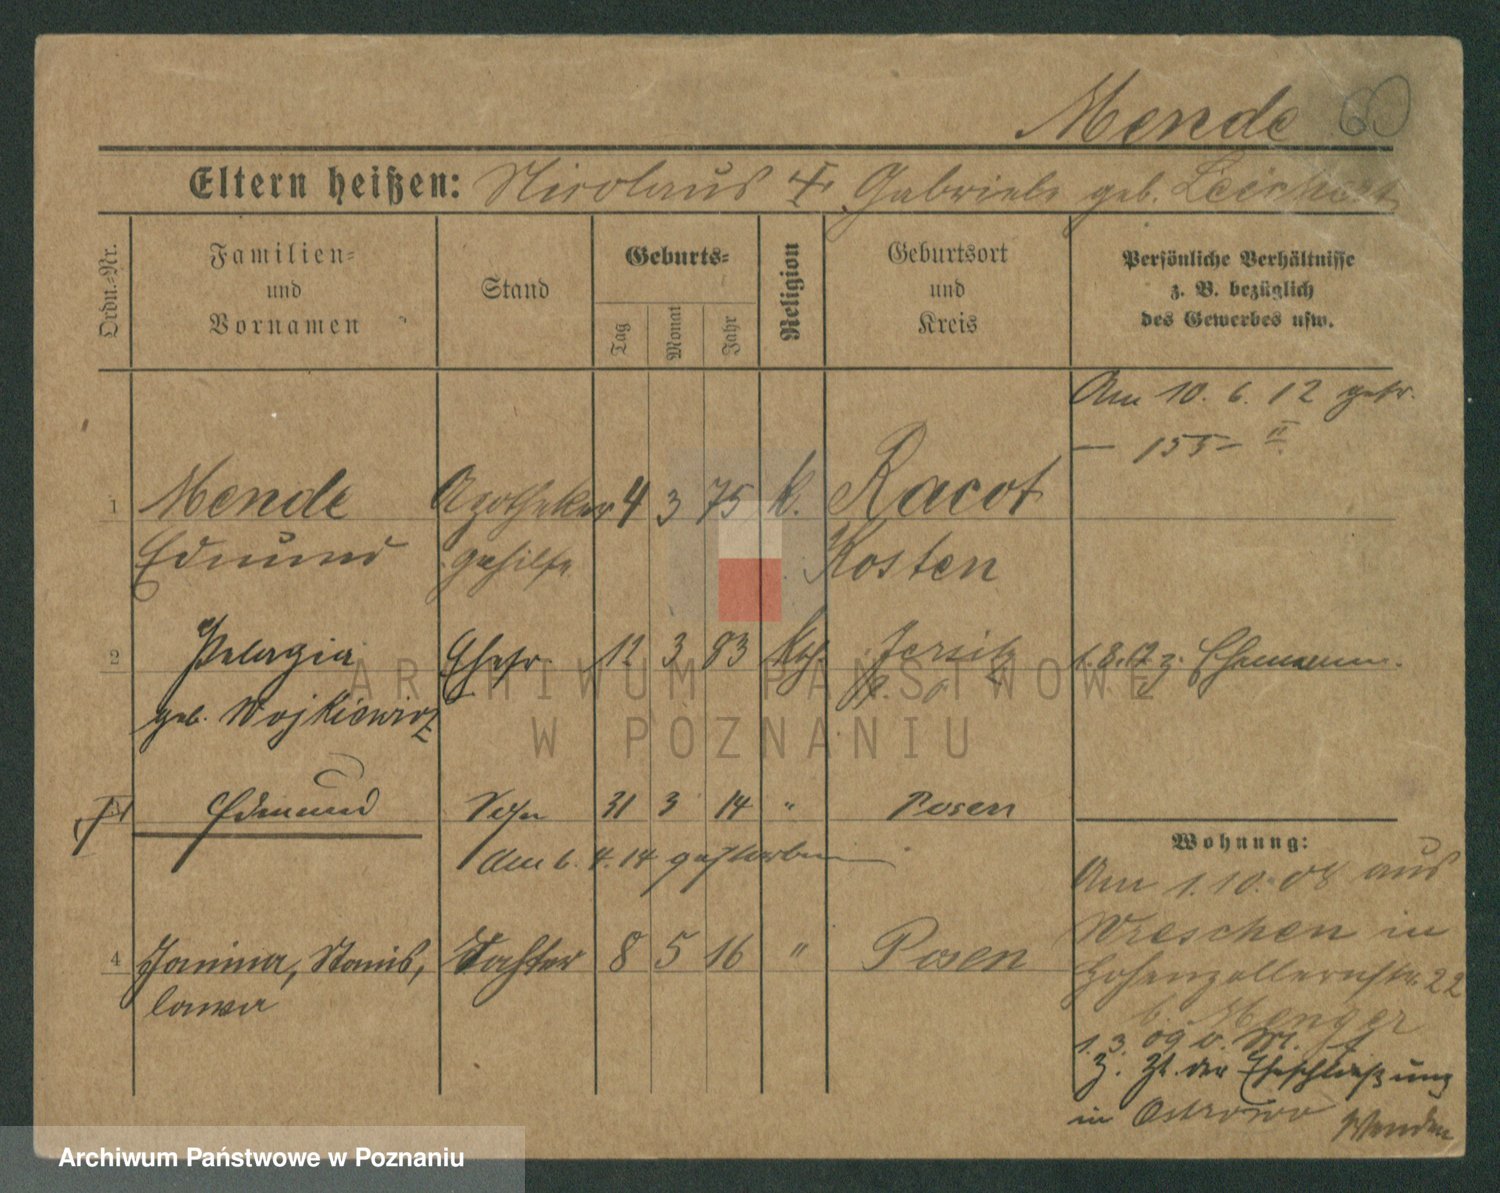 Mende 60
Eltern heißen: Nicolaus † Gabriele geb.
Ordn.-Nr.
Familien-
und
Vornamen
Stand
Geburts-
Tag
Monat
Jahr
Religion
Geburtsort
und
Kreis
Persönliche Verhältnisse
z. B. bezüglich
des Gewerbes usw.
Am 10. 6. 12 getr.
— 155 — II
1 Mende Apotheker 4 3 75 k. Racot
Edmund gehilfe Kosten
2 Pelagia Ehefr. 12 3 83 kth Jersitz 1.8.12 z. Ehemann.
geb. Wojkiewicz
† Edmund Sohn 31 3 14 " Posen
am 6. 4. 14 gestorben
4 Janina, Stanis, Tochter 8 5 16 " Posen
lawa
Wohnung:
Am 1. 10. 08 aus
Wreschen in
Hohenzollernstr. 22
b. Menger
1. 3. 09 v.
z. Zt. der Eheschließung
in Ostrowo
Wenden
ARCHIWUM PAŃSTWOWE
W POZNANIU
Archiwum Państwowe w Poznaniu